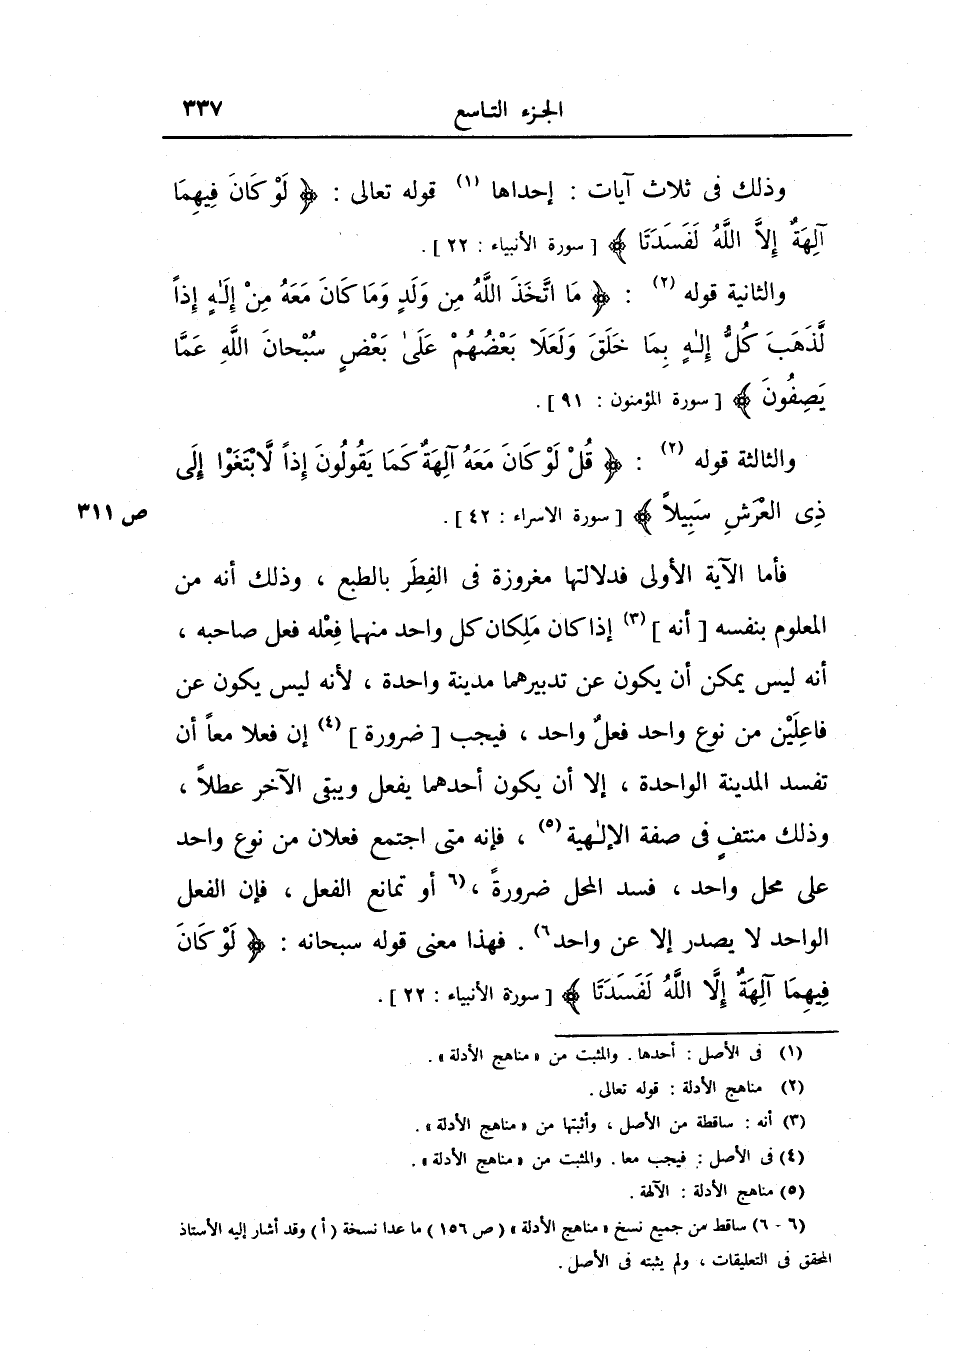 الجزء التاسع ٣٣٧
وذلك فى ثلاث آيات : إحداها (١) قوله تعالى : ﴿ لَوْ كَانَ فِيهِمَا
آلِهَةٌ إِلاَّ اللَّهُ لَفَسَدَتَا ﴾ [ سورة الأنبياء : ٢٢ ] .
والثانية قوله (٢) : ﴿ مَا اتَّخَذَ اللَّهُ مِن وَلَدٍ وَمَا كَانَ مَعَهُ مِنْ إِلَـٰهٍ إِذاً
لَّذَهَبَ كُلُّ إِلـٰهٍ بِمَا خَلَقَ وَلَعَلَا بَعْضُهُمْ عَلَىٰ بَعْضٍ سُبْحانَ اللَّهِ عَمَّا
يَصِفُونَ ﴾ [ سورة المؤمنون : ٩١ ] .
والثالثة قوله (٢) : ﴿ قُلْ لَوْ كَانَ مَعَهُ آلِهَةٌ كَمَا يَقُولُونَ إِذاً لَّابْتَغَوْا إِلَى
ذِى الْعَرْشِ سَبِيلاً ﴾ [ سورة الاسراء : ٤٢ ] . ص ٣١١
فأما الآية الأولى فدلالتها مغروزة فى الفِطَر بالطبع ، وذلك أنه من
المعلوم بنفسه [ أنه ] (٣) إذا كان مَلِكان كل واحد منهما فِعْله فعل صاحبه ،
أنه ليس يمكن أن يكون عن تدبيرهما مدينة واحدة ، لأنه ليس يكون عن
فاعِلَيْن من نوع واحد فعلٌ واحد ، فيجب [ ضرورة ] (٤) إن فعلا معاً أن
تفسد المدينة الواحدة ، إلا أن يكون أحدهما يفعل ويبقى الآخر عطلاً ،
وذلك منتفٍ فى صفة الإلـٰهية (٥) ، فإنه متى اجتمع فعلان من نوع واحد
على محل واحد ، فسد المحل ضرورةً ، (٦ أو تمانع الفعل ، فإن الفعل
الواحد لا يصدر إلا عن واحد ٦) . فهذا معنى قوله سبحانه : ﴿ لَوْ كَانَ
فِيهِمَا آلِهَةٌ إِلَّا اللَّهُ لَفَسَدَتَا ﴾ [ سورة الأنبياء : ٢٢ ] .
(١) فى الأصل : أحدها . والمثبت من « مناهج الأدلة » .
(٢) مناهج الأدلة : قوله تعالى .
(٣) أنه : ساقطة من الأصل ، وأثبتها من « مناهج الأدلة » .
(٤) فى الأصل : فيجب معا . والمثبت من « مناهج الأدلة » .
(٥) مناهج الأدلة : الآلهة .
(٦ - ٦) ساقط من جميع نسخ « مناهج الأدلة » ( ص ١٥٦ ) ما عدا نسخة ( أ ) وقد أشار إليه الأستاذ
المحقق فى التعليقات ، ولم يثبته فى الأصل .